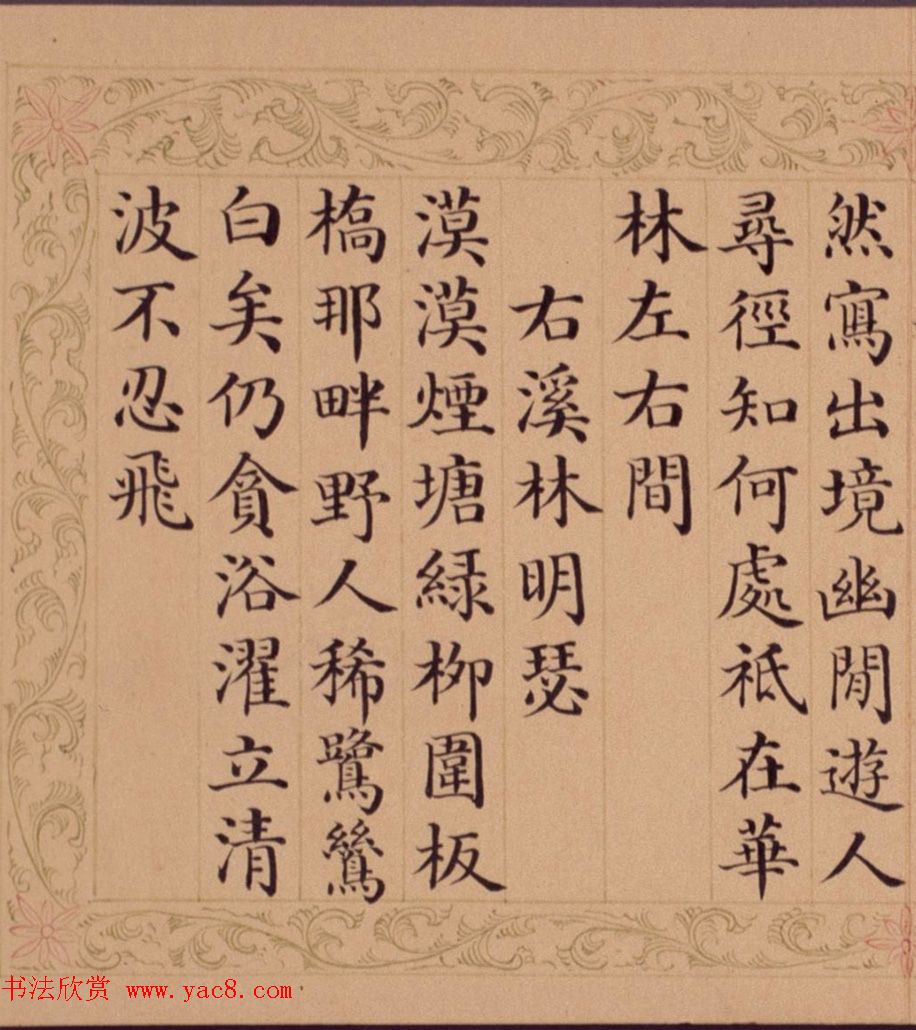 然寫出境幽閒遊人
尋徑知何處祇在華
林左右間
右溪林明瑟
漠漠煙塘綠柳圍板
橋那畔野人稀鷺鷥
白矣仍貪浴濯立清
波不忍飛
书法欣赏 www.yac8.com